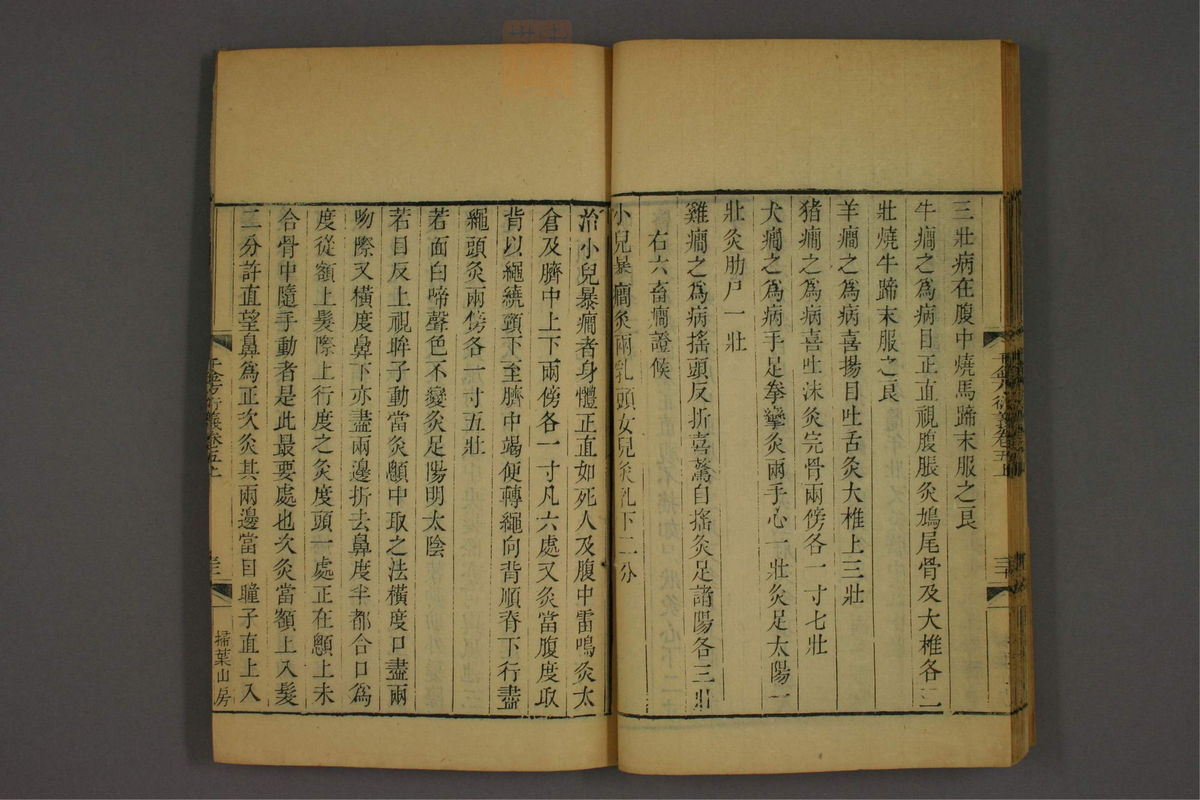 三壯病在腹中燒馬蹄末服之良
牛癎之爲病目正直視腹脹灸鳩尾骨及大椎各二
壯燒牛蹄末服之良
羊癎之爲病喜揚目吐舌灸大椎上三壯
猪癎之爲病喜吐沫灸完骨兩傍各一寸七壯
犬癎之爲病手足拳攣灸兩手心一壯灸足太陽一
壯灸肋戸一壯
雞癎之爲病搖頭反折喜驚自搖灸足諸陽各三壯
右六畜癎證候
小兒暴癎灸兩乳頭女兒灸乳下二分
治小兒暴癎者身體正直如死人及腹中雷鳴灸太
倉及臍中上下兩傍各一寸凡六處又灸當腹度取
背以繩繞頸下至臍中竭便轉繩向背順脊下行盡
繩頭灸兩傍各一寸五壯
若面白啼聲色不變灸足陽明太陰
若目反上視眸子動當灸顖中取之法橫度口盡兩
吻際又橫度鼻下亦盡兩邊折去鼻度半都合口爲
度從額上髮際上行度之灸度頭一處正在顖上未
合骨中隨手動者是此最要處也次灸當額上入髮
二分許直望鼻爲正次灸其兩邊當目瞳子直上入
千金方衍義卷五上
掃葉山房